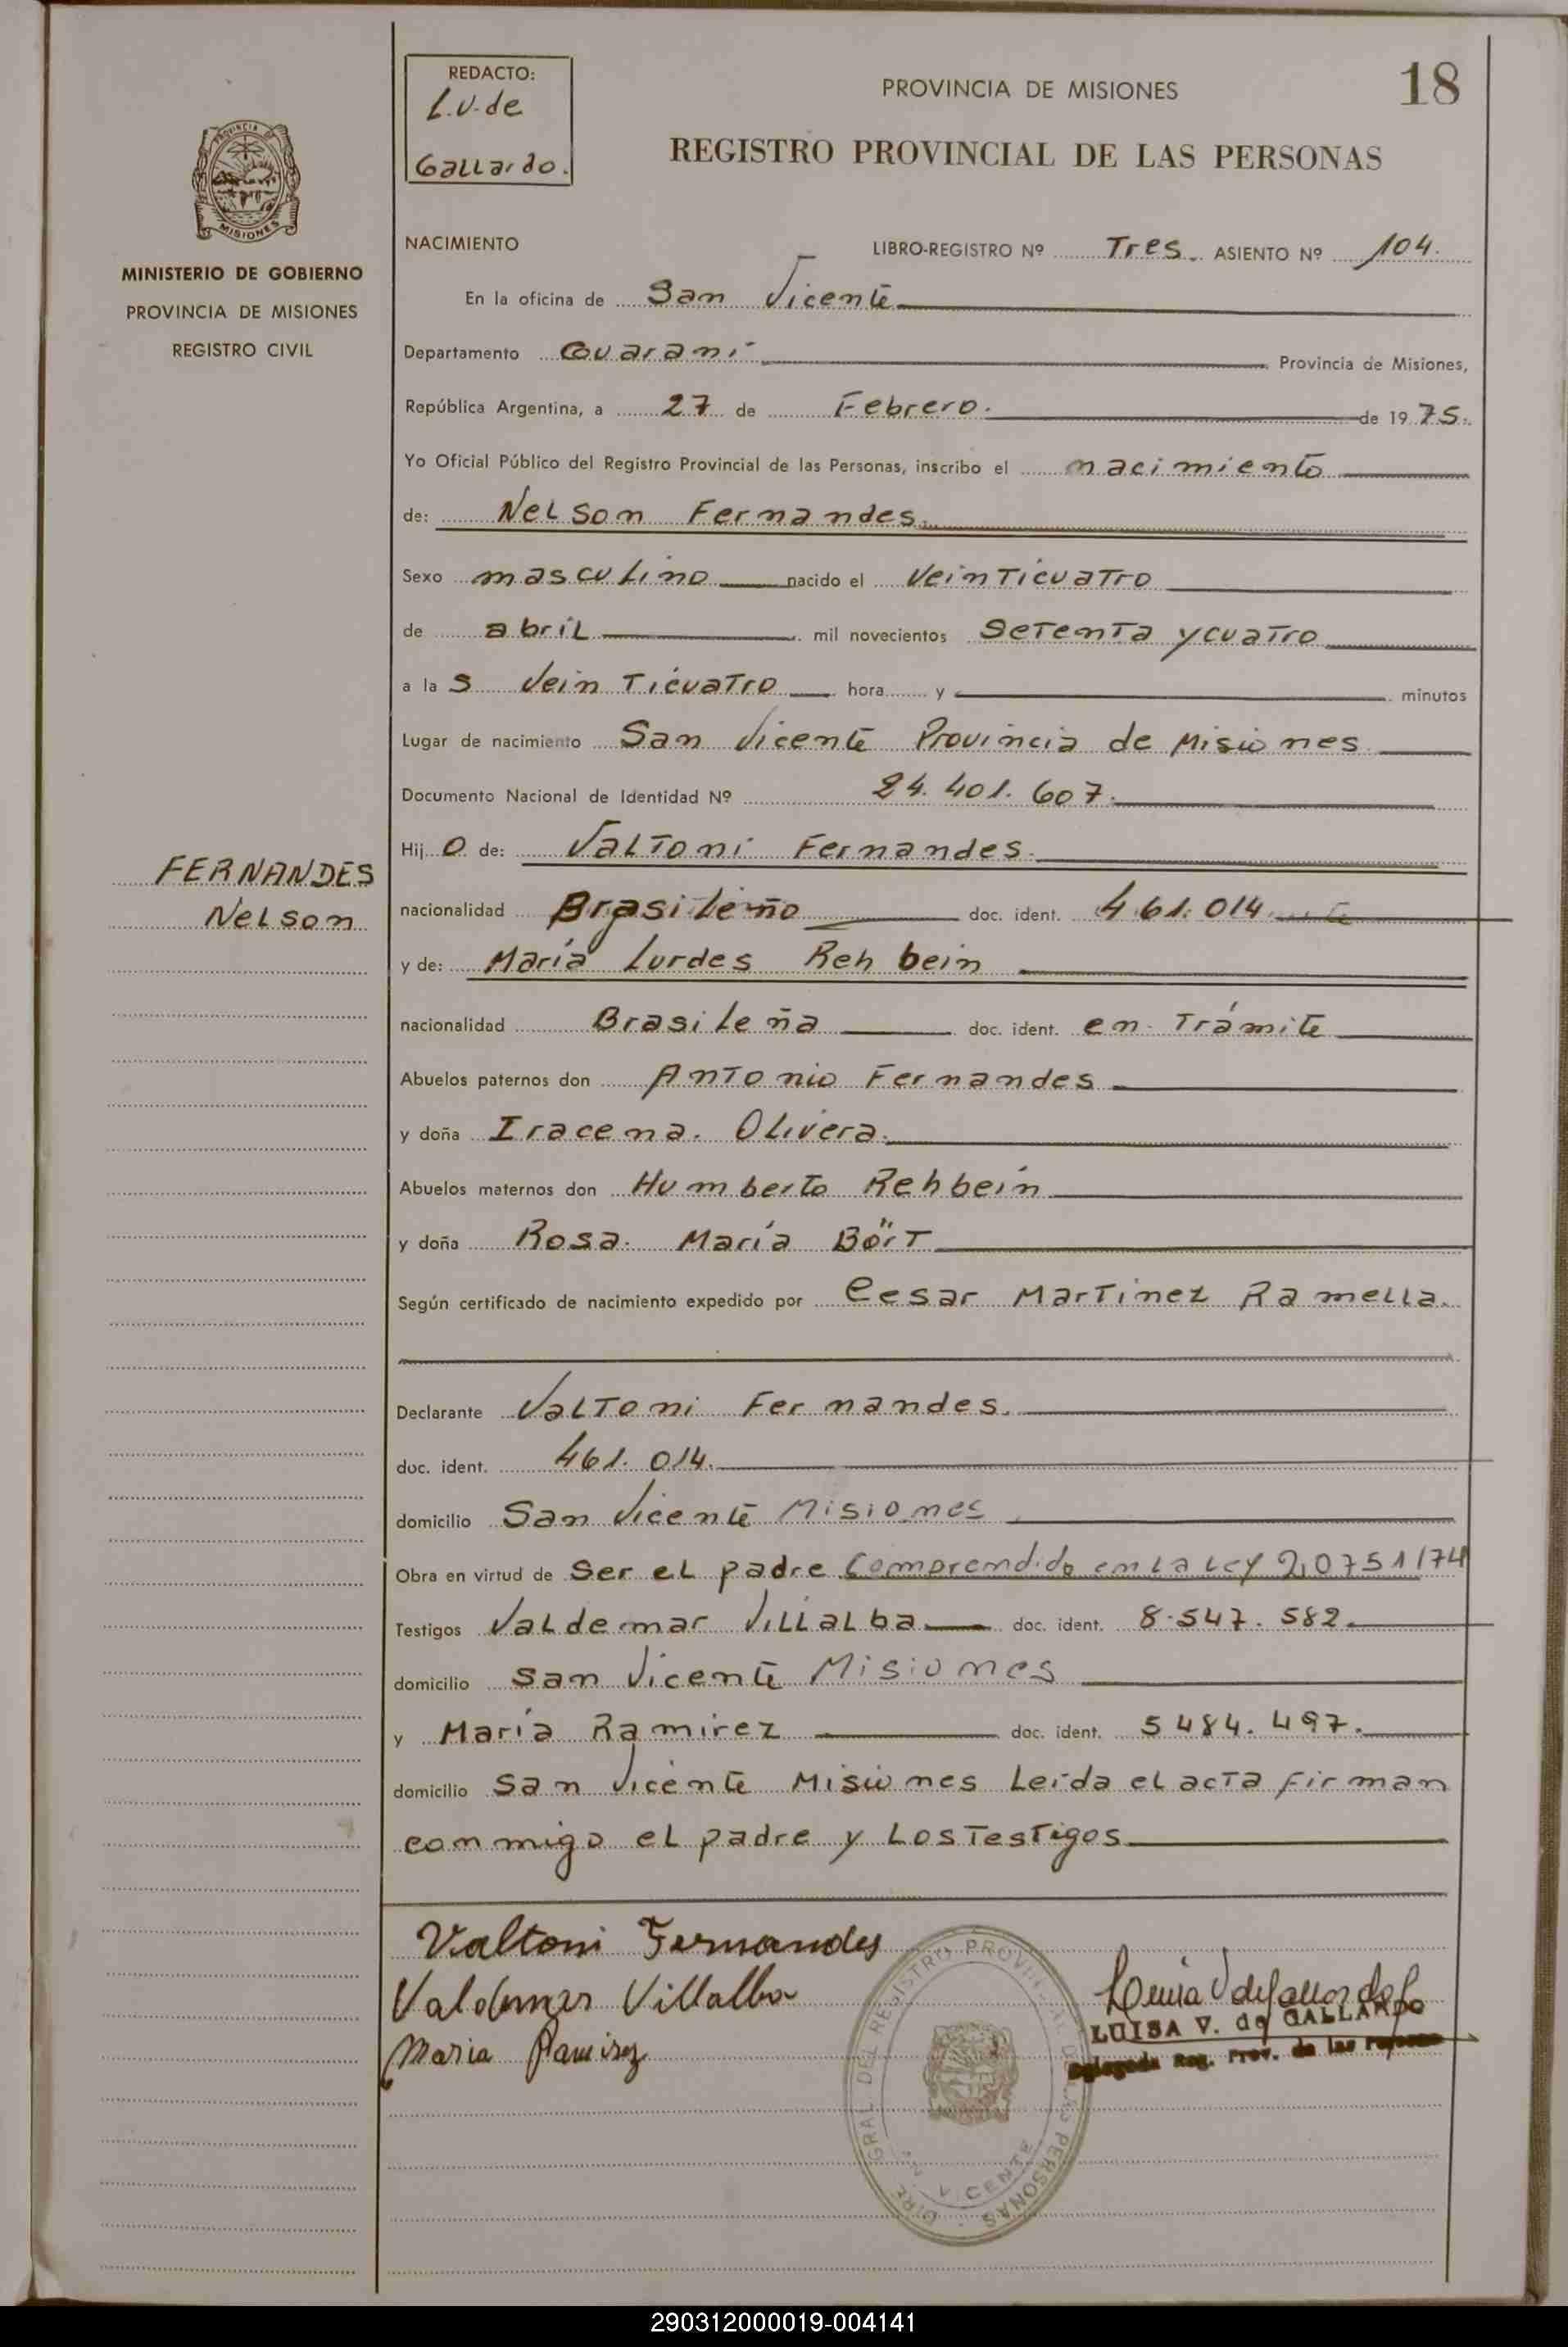 REDACTO:
L.V. de
Gallardo.
PROVINCIA DE MISIONES
18
REGISTRO PROVINCIAL DE LAS PERSONAS
PROVINCIA DE
MISIONES
MINISTERIO DE GOBIERNO
PROVINCIA DE MISIONES
REGISTRO CIVIL
NACIMIENTO LIBRO-REGISTRO Nº Tres. ASIENTO Nº 104.
En la oficina de San Vicente
Departamento Guaraní Provincia de Misiones,
República Argentina, a 27 de Febrero. de 1975.
Yo Oficial Público del Registro Provincial de las Personas, inscribo el nacimiento
de: Nelson Fernandes.
Sexo masculino nacido el veinticuatro
de abril mil novecientos setenta y cuatro
a las veinticuatro hora y minutos
Lugar de nacimiento San Vicente Provincia de Misiones
Documento Nacional de Identidad Nº 24.401.607.
Hijo de: Valtoni Fernandes.
FERNANDES
Nelson
nacionalidad Brasileño doc. ident. 461.014
y de: María Lurdes Rehbein
nacionalidad Brasileña doc. ident. en Trámite
Abuelos paternos don Antonio Fernandes
y doña Iracena. Olivera.
Abuelos maternos don Humberto Rehbein
y doña Rosa. María Bört
Según certificado de nacimiento expedido por Cesar Martinez Ramella.
Declarante Valtoni Fernandes.
doc. ident. 461.014.
domicilio San Vicente Misiones
Obra en virtud de ser el padre Comprendido en la Ley 20751/74
Testigos Valdemar Villalba doc. ident. 8.547.582.
domicilio San Vicente Misiones
y María Ramirez doc. ident. 5484.497.
domicilio San Vicente Misiones Leida el acta firman
conmigo el padre y los testigos
Valtoni Fernandes
Valdemar Villalba
Maria Ramirez
Luisa V de Gallardo
LUISA V. de GALLARDO
Delegada Reg. Prov. de las Personas
GRAL DEL REGISTRO PROVINCIAL DE LAS PERSONAS
VICENTE
290312000019-004141